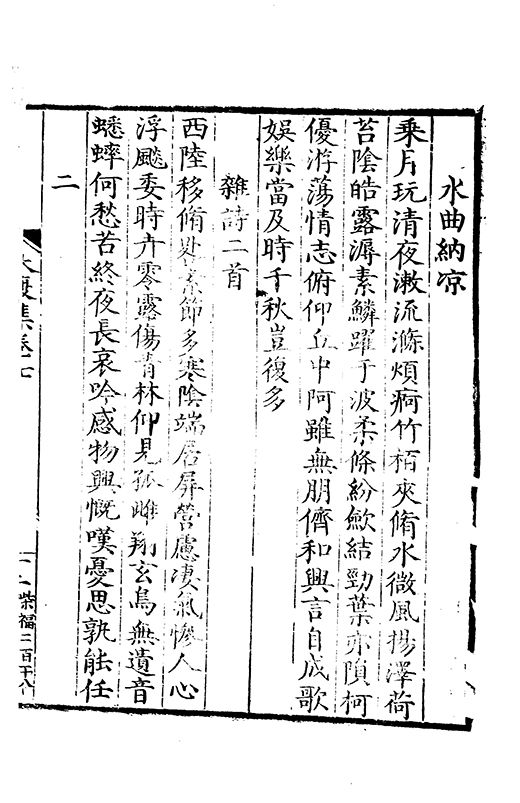 水曲納凉
乗月玩清夜潄流滌煩痾竹栢夾脩水微風揚澤荷
苔陰皓露溽素鱗躍于波柔條紛歘結勁葉亦隕柯
優游蕩情志俯仰丘中阿雖無朋儕和興言自成歌
娯樂當及時千秋豈復多
雜詩二首
西陸移脩 節多寒陰端居屏營慮凄氣慘人心
浮飈委時卉零露傷青林仰見孤雌翔玄鳥無遺音
蟋蟀何愁苦終夜長哀吟感物興慨嘆憂思孰能任
二
集卷七
一 柴福三百干八